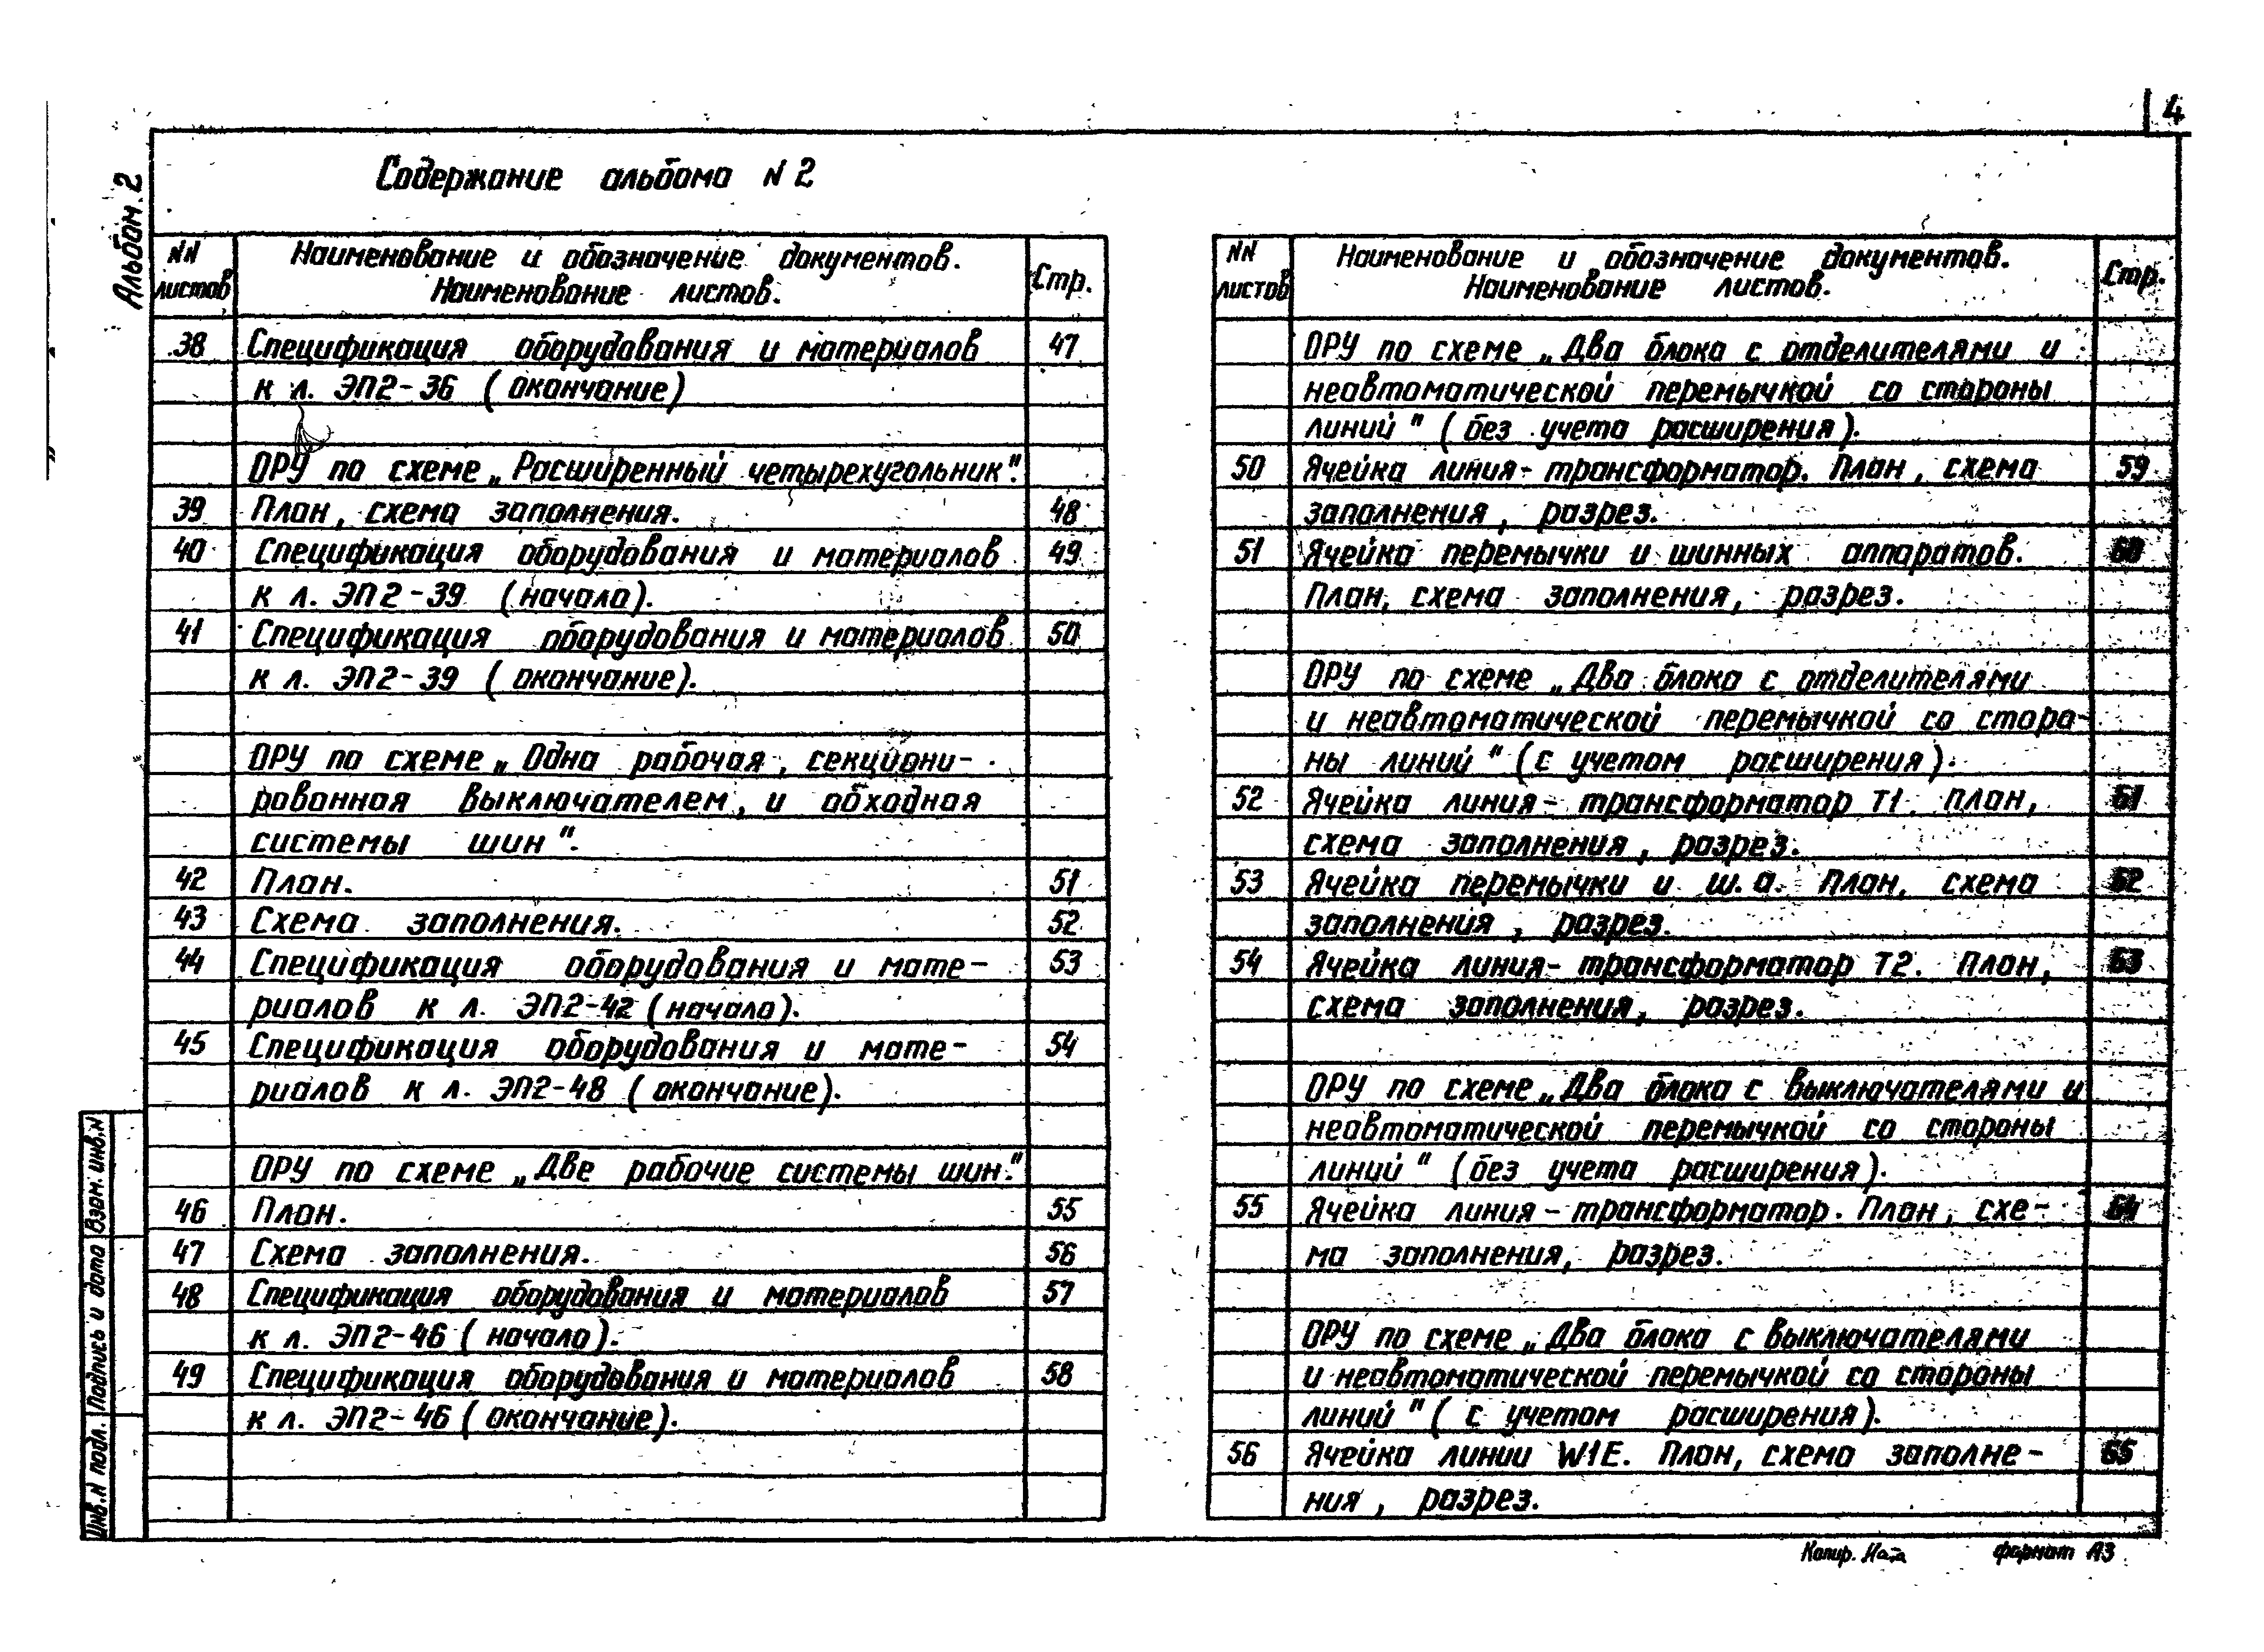 4
Альбом. 2
Содержание альбома N 2
NN листов
Наименование и обозначение документов.
Наименование листов.
Стр.
38 Спецификация оборудования и материалов 47
к л. ЭП2-36 (окончание)
ОРУ по схеме „Расширенный четырехугольник".
39 План, схема заполнения. 48
40 Спецификация оборудования и материалов 49
к л. ЭП2-39 (начало).
41 Спецификация оборудования и материалов 50
к л. ЭП2-39 (окончание).
ОРУ по схеме „Одна рабочая, секциони-
рованная выключателем, и обходная
системы шин".
42 План. 51
43 Схема заполнения. 52
44 Спецификация оборудования и мате- 53
риалов к л. ЭП2-42 (начало).
45 Спецификация оборудования и мате- 54
риалов к л. ЭП2-48 (окончание).
ОРУ по схеме „Две рабочие системы шин".
46 План. 55
47 Схема заполнения. 56
48 Спецификация оборудования и материалов 57
к л. ЭП2-46 (начало).
49 Спецификация оборудования и материалов 58
к л. ЭП2-46 (окончание).
NN листов
Наименование и обозначение документов.
Наименование листов.
Стр.
ОРУ по схеме „Два блока с отделителями и
неавтоматической перемычкой со стороны
линий" (без учета расширения).
50 Ячейка линия-трансформатор. План, схема 59
заполнения, разрез.
51 Ячейка перемычки и шинных аппаратов. 60
План, схема заполнения, разрез.
ОРУ по схеме „Два блока с отделителями
и неавтоматической перемычкой со сторо-
ны линий" (с учетом расширения).
52 Ячейка линия-трансформатор Т1. План, 61
схема заполнения, разрез.
53 Ячейка перемычки и ш.а. План, схема 62
заполнения, разрез.
54 Ячейка линия-трансформатор Т2. План, 63
схема заполнения, разрез.
ОРУ по схеме „Два блока с выключателями и
неавтоматической перемычкой со стороны
линий" (без учета расширения).
55 Ячейка линия-трансформатор. План, схе- 64
ма заполнения, разрез.
ОРУ по схеме „Два блока с выключателями
и неавтоматической перемычкой со стороны
линий" (с учетом расширения).
56 Ячейка линии W1E. План, схема заполне- 65
ния, разрез.
Инв.N подл. Подпись и дата Взам. инв.N
Копир. Ната формат А3